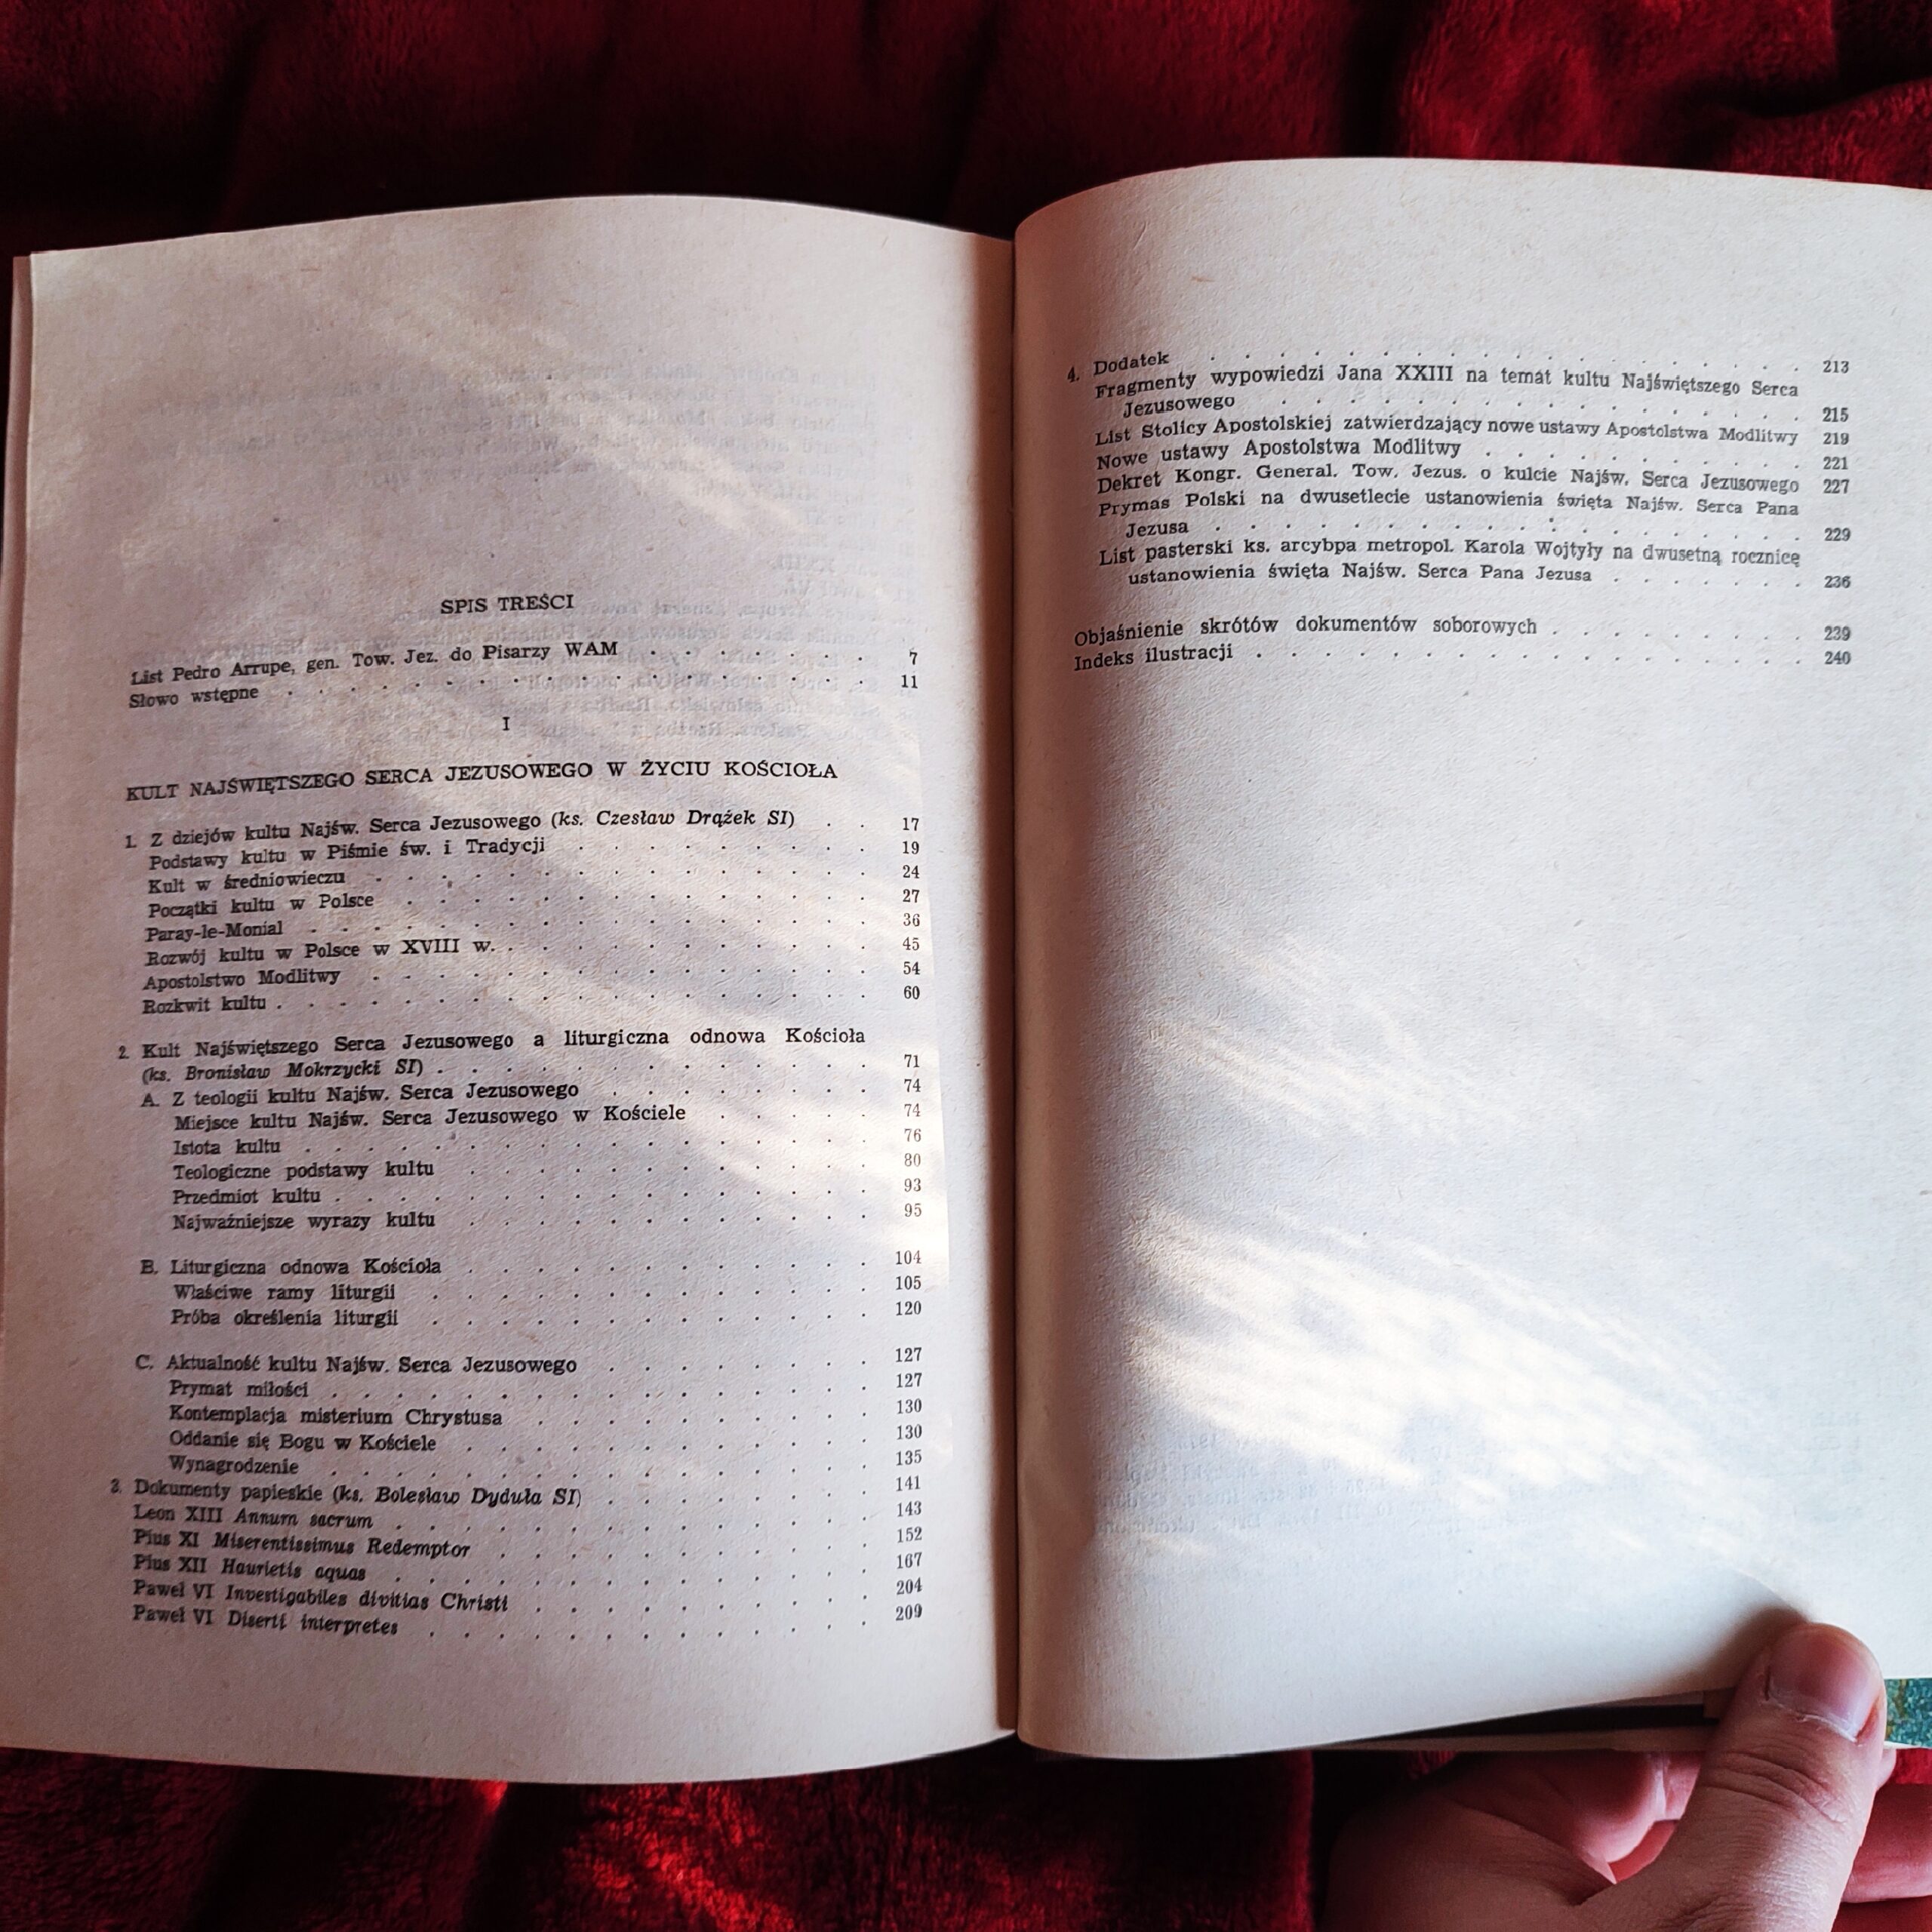 SPIS TREŚCI
List Pedro Arrupe, gen. Tow. Jez. do Pisarzy WAM . . . . . . . 7
Słowo wstępne . . . . . . . . . . . . . . . . 11
I
KULT NAJŚWIĘTSZEGO SERCA JEZUSOWEGO W ŻYCIU KOŚCIOŁA
1. Z dziejów kultu Najśw. Serca Jezusowego (ks. Czesław Drążek SI) . . 17
Podstawy kultu w Piśmie św. i Tradycji . . . . . . . . . 19
Kult w średniowieczu . . . . . . . . . . . . . . 24
Początki kultu w Polsce . . . . . . . . . . . . . 27
Paray-le-Monial . . . . . . . . . . . . . . . . 36
Rozwój kultu w Polsce w XVIII w. . . . . . . . . . . 45
Apostolstwo Modlitwy . . . . . . . . . . . . . . 54
Rozkwit kultu . . . . . . . . . . . . . . . . . 60
2. Kult Najświętszego Serca Jezusowego a liturgiczna odnowa Kościoła
(ks. Bronisław Mokrzycki SI) . . . . . . . . . . . . 71
A. Z teologii kultu Najśw. Serca Jezusowego . . . . . . . . 74
Miejsce kultu Najśw. Serca Jezusowego w Kościele . . . . . 74
Istota kultu . . . . . . . . . . . . . . . . 76
Teologiczne podstawy kultu . . . . . . . . . . . . 80
Przedmiot kultu . . . . . . . . . . . . . . . 93
Najważniejsze wyrazy kultu . . . . . . . . . . . . 95
B. Liturgiczna odnowa Kościoła . . . . . . . . . . . . 104
Właściwe ramy liturgii . . . . . . . . . . . . . 105
Próba określenia liturgii . . . . . . . . . . . . . 120
C. Aktualność kultu Najśw. Serca Jezusowego . . . . . . . . 127
Prymat miłości . . . . . . . . . . . . . . . 127
Kontemplacja misterium Chrystusa . . . . . . . . . . 130
Oddanie się Bogu w Kościele . . . . . . . . . . . . 130
Wynagrodzenie . . . . . . . . . . . . . . . 135
3. Dokumenty papieskie (ks. Bolesław Dyduła SI) . . . . . . . . 141
Leon XIII Annum sacrum . . . . . . . . . . . . . . 143
Pius XI Miserentissimus Redemptor . . . . . . . . . . . 152
Pius XII Haurietis aquas . . . . . . . . . . . . . . 167
Paweł VI Investigabiles divitias Christi . . . . . . . . . . 204
Paweł VI Diserti interpretes . . . . . . . . . . . . . 209
4. Dodatek . . . . . . . . . . . . . . . . . . 213
Fragmenty wypowiedzi Jana XXIII na temat kultu Najświętszego Serca
Jezusowego . . . . . . . . . . . . . . . . 215
List Stolicy Apostolskiej zatwierdzający nowe ustawy Apostolstwa Modlitwy 219
Nowe ustawy Apostolstwa Modlitwy . . . . . . . . . . 221
Dekret Kongr. General. Tow. Jezus. o kulcie Najśw. Serca Jezusowego 227
Prymas Polski na dwusetlecie ustanowienia święta Najśw. Serca Pana
Jezusa . . . . . . . . . . . . . . . . . . 229
List pasterski ks. arcybpa metropol. Karola Wojtyły na dwusetną rocznicę
ustanowienia święta Najśw. Serca Pana Jezusa . . . . . . . 236
Objaśnienie skrótów dokumentów soborowych . . . . . . . . 239
Indeks ilustracji . . . . . . . . . . . . . . . . . 240